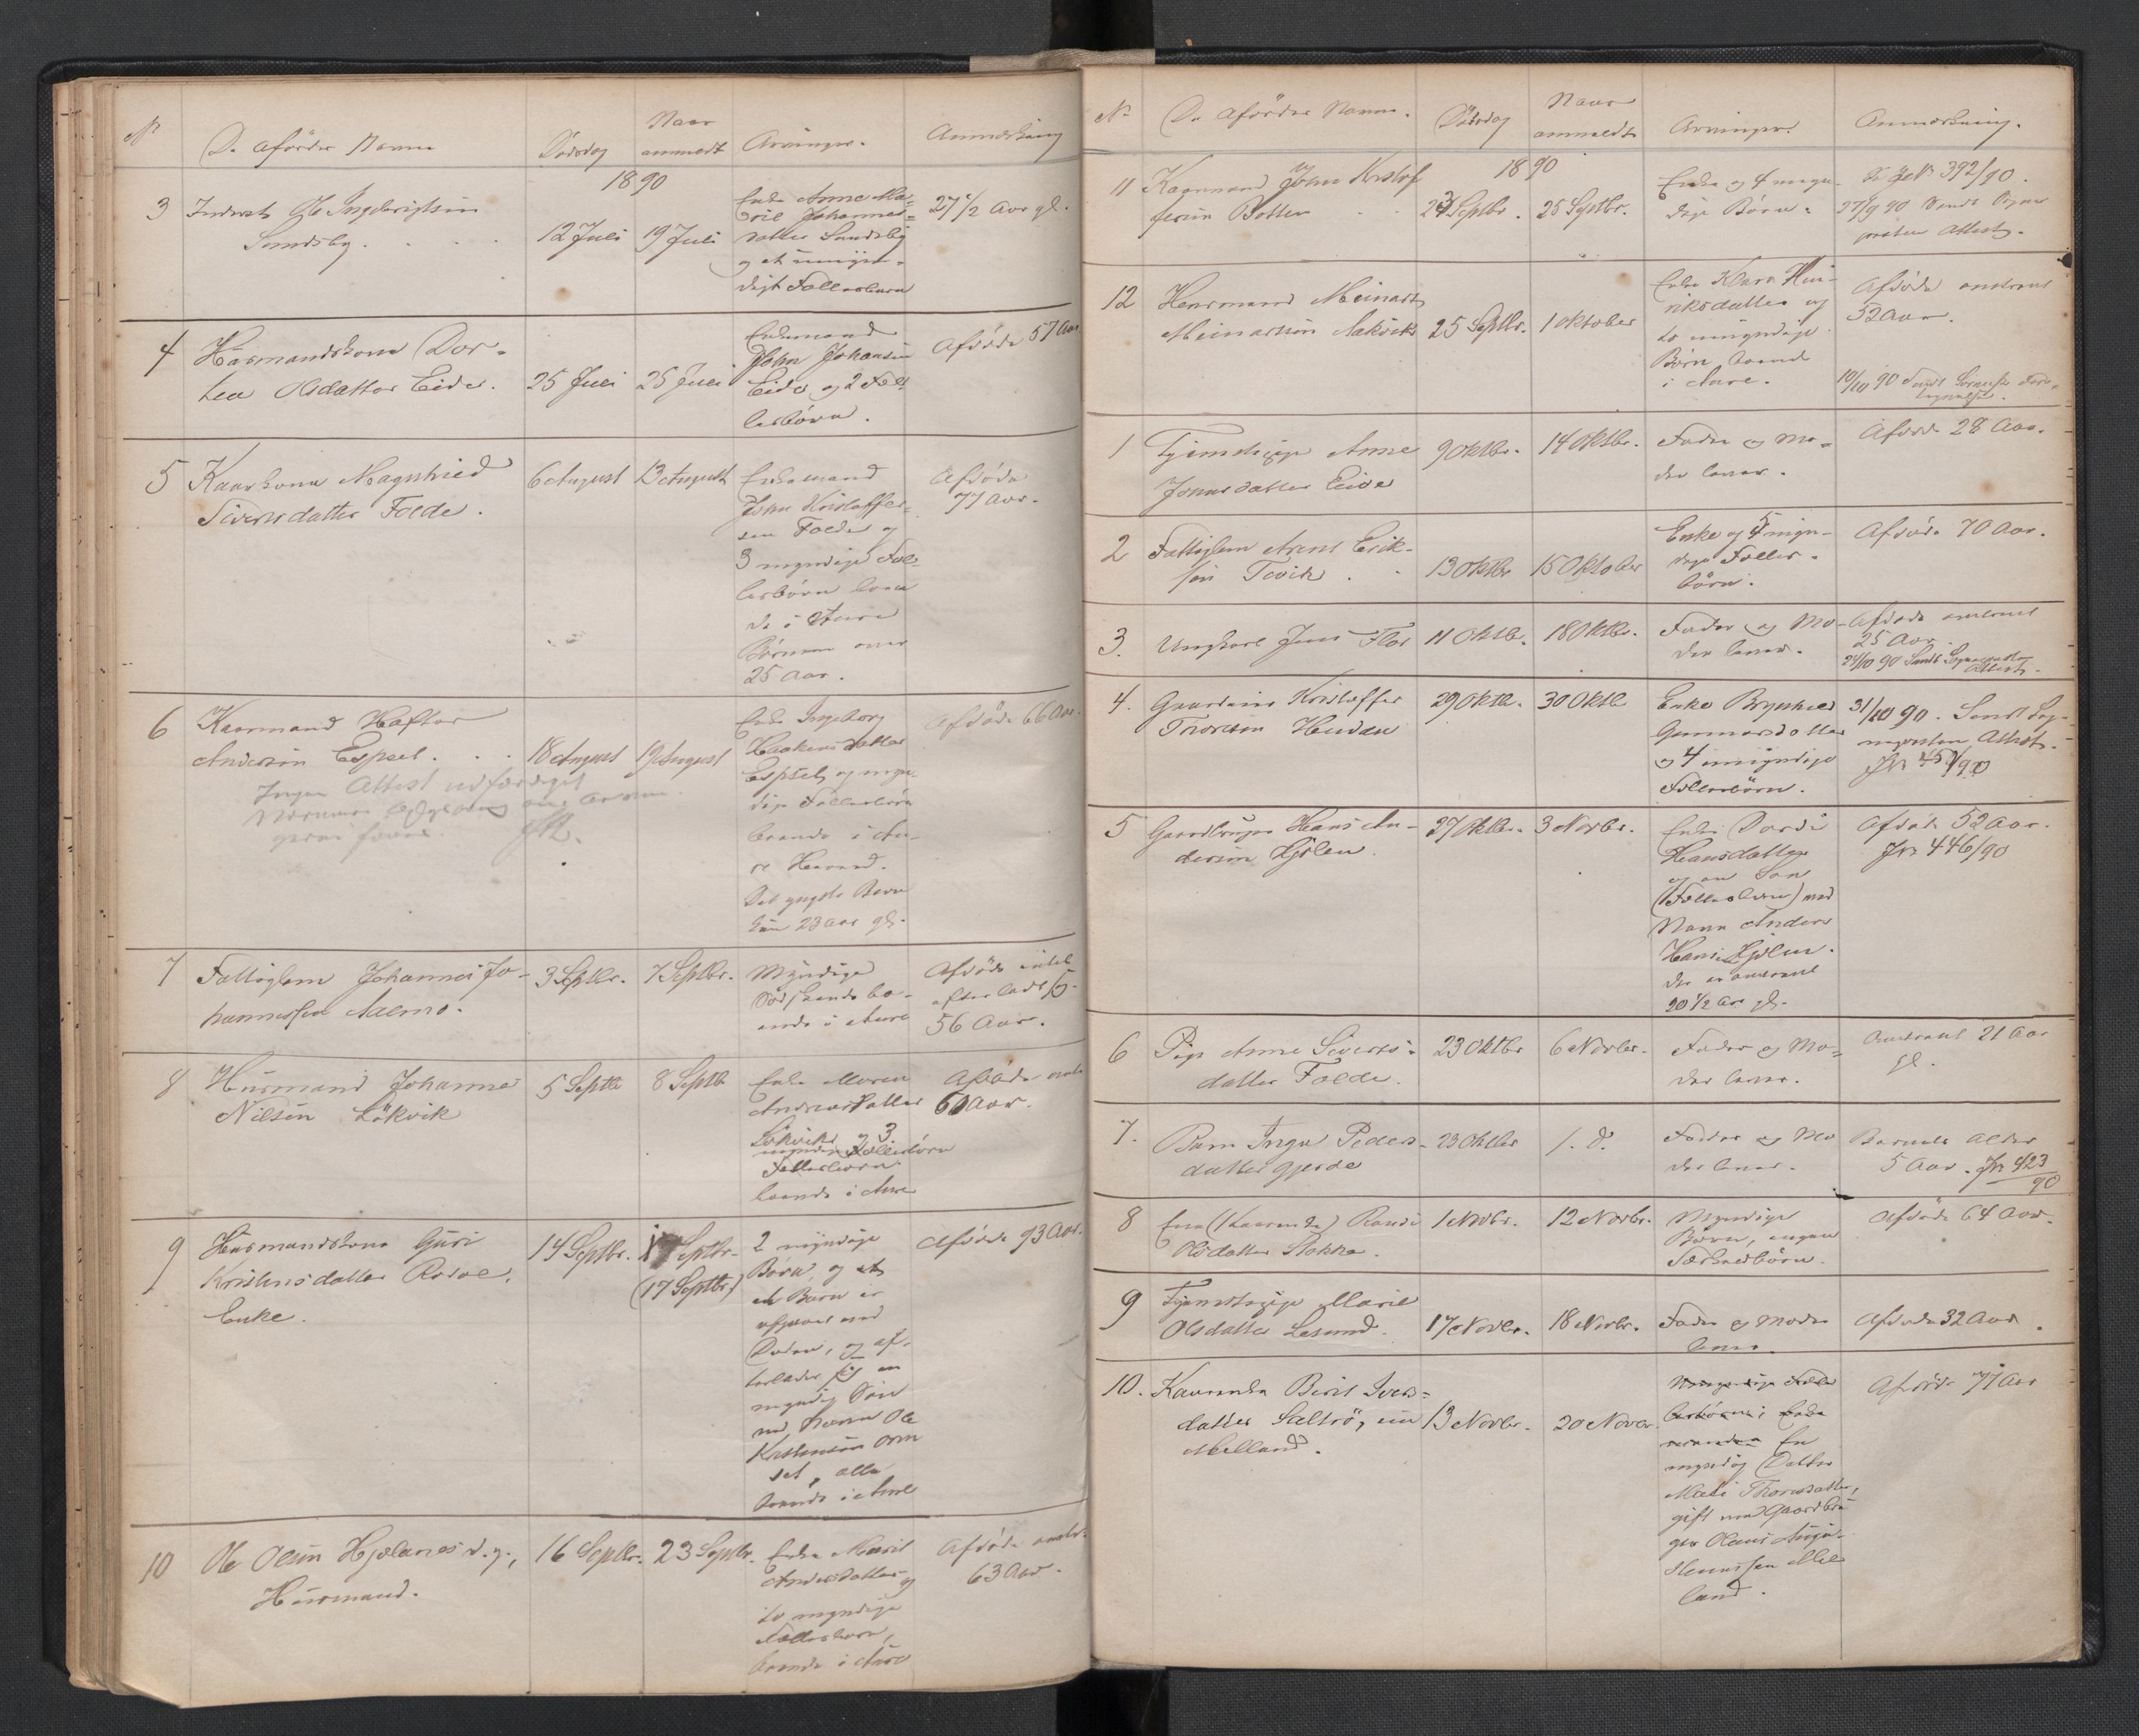 No
De Afdødes Navne
Dødsdag
Naar
anmeldt
Arvinger.
Anmærkning
1890
3
Inderst Ole Ingebrigtsen
Sandsby.
12 Juli
19 Juli
Enke Anne Ma-
rie Johannes-
datter Sandsby
og et umyn-
digt Fællesbarn
27 1/2 Aar gl.
4
Husmandskone Dor-
tea Olsdatter Eide.
25 Juli
25 Juli
Enkemand
John Johansen
Eide og 2 Fæl-
lesbørn.
Afdøde 57 Aar
5
Kaarkone Magnhild
Siversdatter Folde.
6 August
13 August
Enkemand
John Kristoffer-
sen Folde og
3 myndige Fæl-
lesbørn boen-
de i Aure
Børnene over
25 Aar.
Afdøde
77 Aar.
6
Kaarmand Haftor
Andersen Espset.
18 August
19 August
Ingen Attest udfærdiget
Enke Ingeborg
Haakensdatter
Espset og myn-
dige Fællesbørn
boende i Au-
re Herred.
Det yngste Barn
23 Aar gl.
Afdøde 66 Aar.
7
Fattiglem Johannes Jo-
hannessen Aalmo.
3 Septbr.
7 Septbr.
Myndige
Sødskende bo-
ende i Aure
Afdøde intet
efterladt sig.
56 Aar.
8
Husmand Johannes
Nilsen Løkvik
5 Septb
8 Septb
Enke Maren
Andreasdatter
Løkvik og 3
Fællesbørn
Fællesbørn
boende i Aure
Afdøde
60 Aar.
9
Husmandskone Guri
Kristensdatter
Enke.
14 Septbr.
17 Septbr.
(17 Septbr)
2 myndige
Børn, og et
et Barn er
afgaaet ved
Døden, og ef-
terlader sig en
myndig Søn
ved Navn Ole
Kristensen Orm
set, alle
boende i Aure
Afdøde 93 Aar.
10
Ole Olsen Hjælnes d.y.,
Husmand.
16 Septbr.
23 Septbr.
Enke Marit
Andersdatter og
to myndige
Fællesbørn,
boende i Aure
Afdøde omtr.
63 Aar.
No
De Afdødes Navne.
Dødsdag
Naar
anmeldt
Arvinger.
Anmærkning.
1890
11
Kaarmand John Kristof
fersen Botten
23 Septbr.
25 Septbr.
Enke og 4 myn-
dige Børn.
JNo 392/90.
27/9 90 Sendt Sogne
presten Attest.
12
Husmand Meinart
Meinartsen Aakvik
25 Septbr.
1 Oktober
Enke Klara Hen-
riksdatter og
to umyndige
Børn, boende
i Aure.
Afdøde omtrent
52 Aar.
10/10 90 Sendt
1
Tjenestepige Anne
Jonasdatter Eide
9 Oktbr.
14 Oktbr.
Fader og Mo-
der lever.
Afdøde 28 Aar.
2
Fattiglem Arent Erik-
sen Tevik
13 Oktbr
15 Oktober
Enke og 5 myn-
dige Fælles-
børn.
Afdøde 70 Aar.
3.
Ungkarl Jens Flor
11 Oktbr.
18 Oktbr.
Fader og Mo-
der lever.
Afdøde omtrent
25 Aar.
24/10 90 Sendt Sognepresten
Attest.
4.
Gaardmand Kristoffer
Thoresen Hendan
29 Oktb.
30 Oktb
Enke Brynhild
Gunnarsdatter
og 4 umyndige
Fællesbørn.
31/10 90. Sendt Sog-
nepresten Attest.
5
Gaardbruger Hans An-
dersen Hjølen.
27 Oktbr.
3 Novbr.
Enke Dordi
Hansdatter
og en Søn
(Fællesbarn) med
Navn Anders
Hansen Hjølen.
der er omtrent
20 1/2 Aar gl.
Afdøde 52 Aar.
JNo 446/90
6
Pige Anne Siverts-
datter Folde.
23 Oktbr
6 Novbr.
Fader og Mo-
der lever.
Omtrent 21 Aar
gl.
7.
Barn Inga Peders-
datter Gjerde
23 Oktbr
s. d.
Fader og Mo
der lever.
Barnets Alder
5 Aar. JNo 423
90
8
Enke (Kaarenke) Randi
Olsdatter Stokke.
1 Novbr.
12 Novbr.
Myndige
Børn, ingen
Særkuldbørn.
Afdøde 64 Aar.
9
Tjenestepige Marit
Olsdatter Lesund.
17 Novbr.
18 Novbr.
Fader og Moder
lever.
Afdøde 32 Aar.
10.
Kaarenke Berit Ivers-
datter Saltrø,
Melland.
13 Novbr.
20 Novbr.
En
myndig Datter
Mali Thoresdatter,
gift med Gaardbru
ger Olaus
Mel
land.
Afdøde 77 Aar